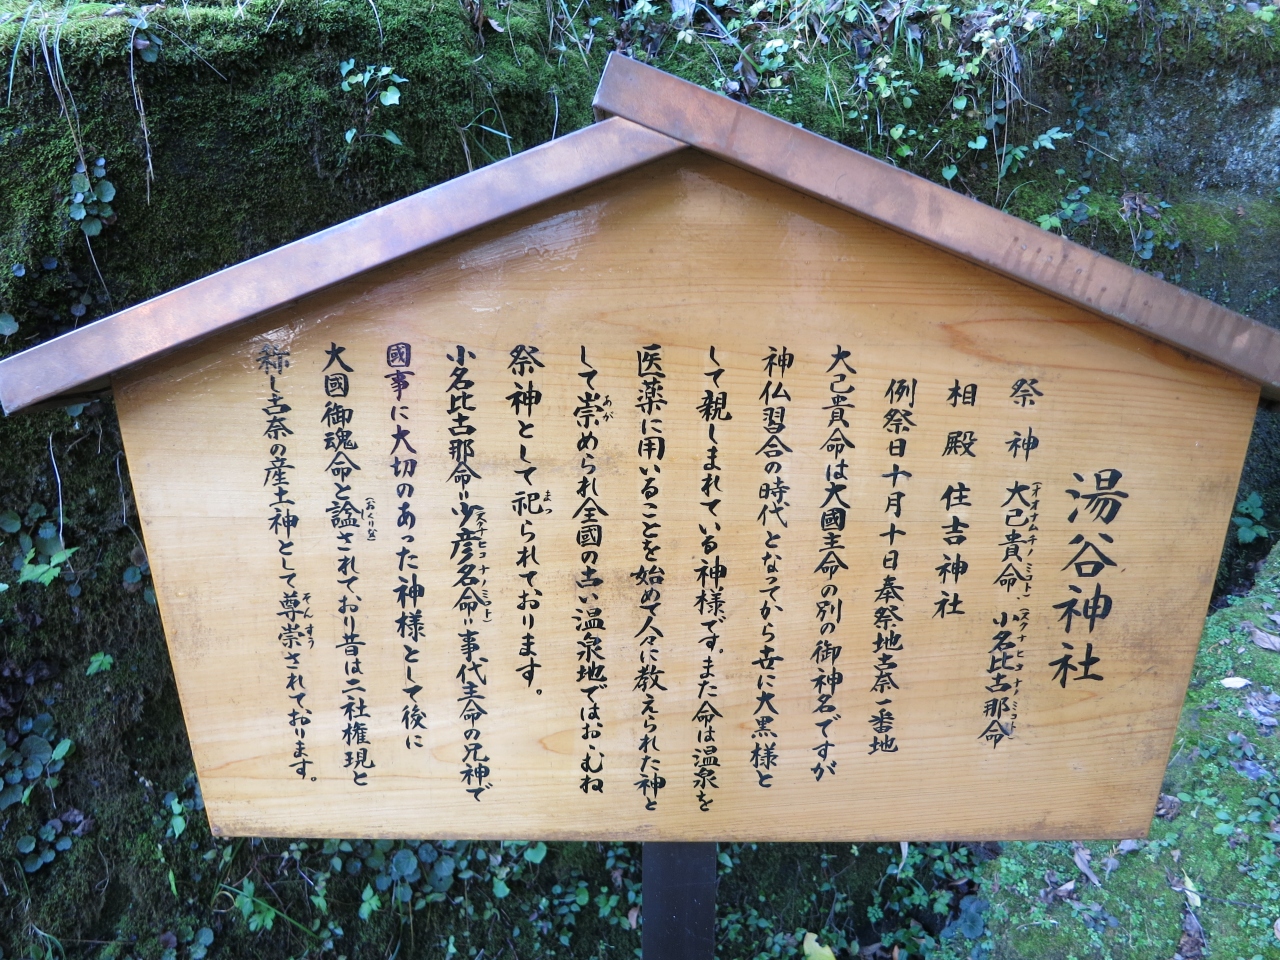 湯谷神社
祭神 大己貴命、小名比古那命
(オオナムチノミコト) (スクナヒコナノミコト)
相殿 住吉神社
例祭日十月十日奉祭地古奈一番地
大己貴命は大國主命の別の御神名ですが
神仏習合の時代となってから世に大黒様と
して親しまれている神様です。また命は温泉を
医薬に用いることを始めて人々に教えられた神と
して崇められ全國の古い温泉地ではおゝむね
あが
祭神として祀られております。
まつ
小名比古那命=少彦名命=事代主命の兄神で
(スクナヒコナノミコト)
國事に大切のあった神様として後に
大國御魂命と諡されており昔は二社権現と
(おくりな)
称し古奈の産土神として尊崇されております。
そんすう